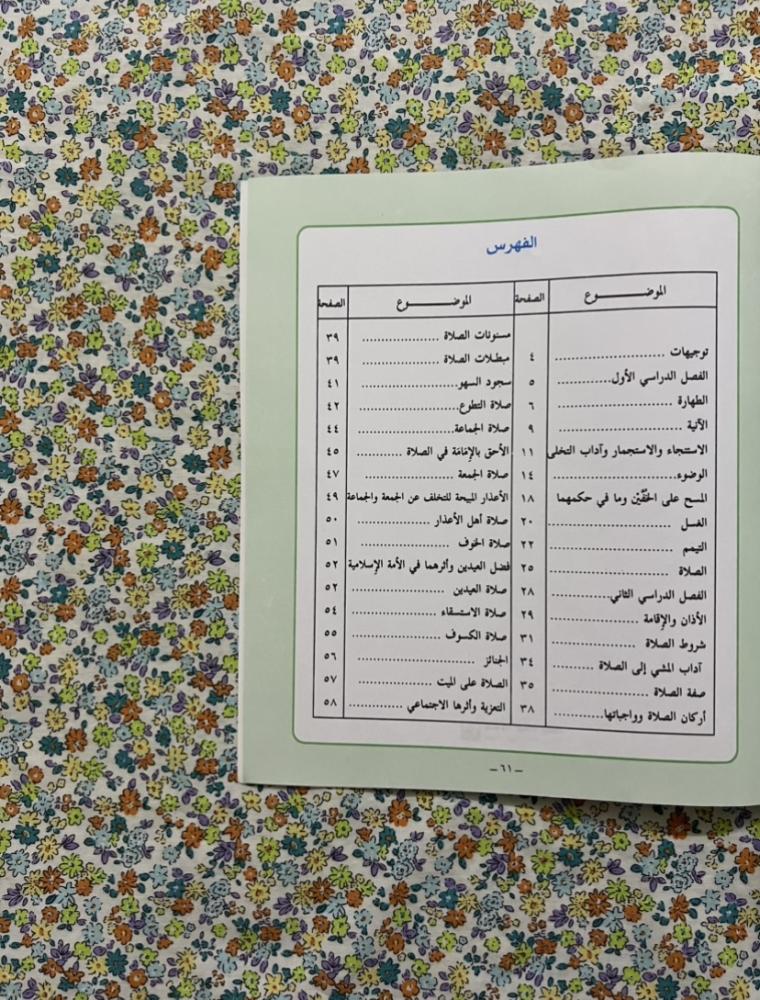 الفهرس
الموضـــــــوع الصفحة
توجيهات ........................... ٤
الفصل الدراسي الأول............. ٥
الطهارة ........................... ٦
الآنية ............................. ٩
الاستنجاء والاستجمار وآداب التخلي ١١
الوضوء............................ ١٤
المسح على الخُفَّيْن وما في حكمهما ١٨
الغسل ............................. ٢٠
التيمم ............................. ٢٢
الصلاة ............................ ٢٥
الفصل الدراسي الثاني............. ٢٨
الأذان والإقامة .................... ٢٩
شروط الصلاة .................... ٣١
آداب المشي إلى الصلاة .......... ٣٤
صفة الصلاة ...................... ٣٥
أركان الصلاة وواجباتها............ ٣٨
الموضـــــــوع الصفحة
مسنونات الصلاة ................... ٣٩
مبطلات الصلاة ................... ٣٩
سجود السهو...................... ٤١
صلاة التطوع...................... ٤٢
صلاة الجماعة..................... ٤٤
الأحق بالإمَامَة في الصلاة ........... ٤٥
صلاة الجمعة ...................... ٤٧
الأعذار المبيحة للتخلف عن الجمعة والجماعة ٤٩
صلاة أهل الأعذار ................. ٥٠
صلاة الخوف ...................... ٥١
فضل العيدين وأثرهما في الأمة الإسلامية ٥٢
صلاة العيدين ...................... ٥٢
صلاة الاستسقاء ................... ٥٤
صلاة الكسوف .................... ٥٥
الجنائز ............................. ٥٦
الصلاة على الميت .................. ٥٧
التعزية وأثرها الاجتماعي ............. ٥٨
– ٦١ –